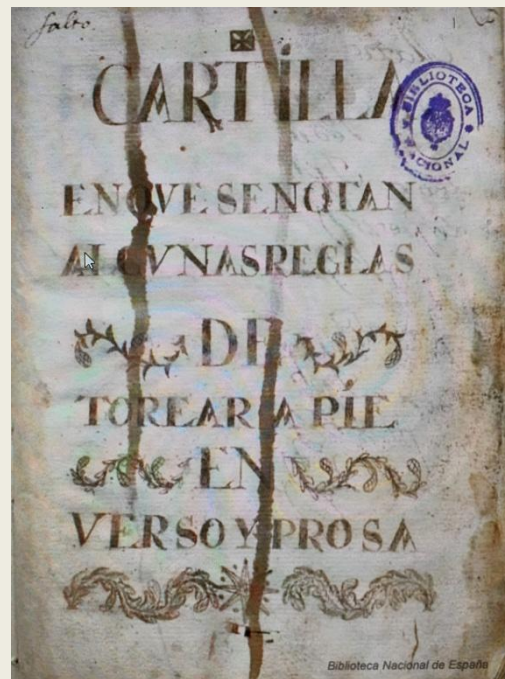 falto.
1.
CARTILLA
BIBLIOTECA
NACIONAL
EN QVE SE NOTAN
ALGVNAS REGLAS
DE
TOREAR A PÍE
EN
VERSO Y PROSA
Biblioteca Nacional de España